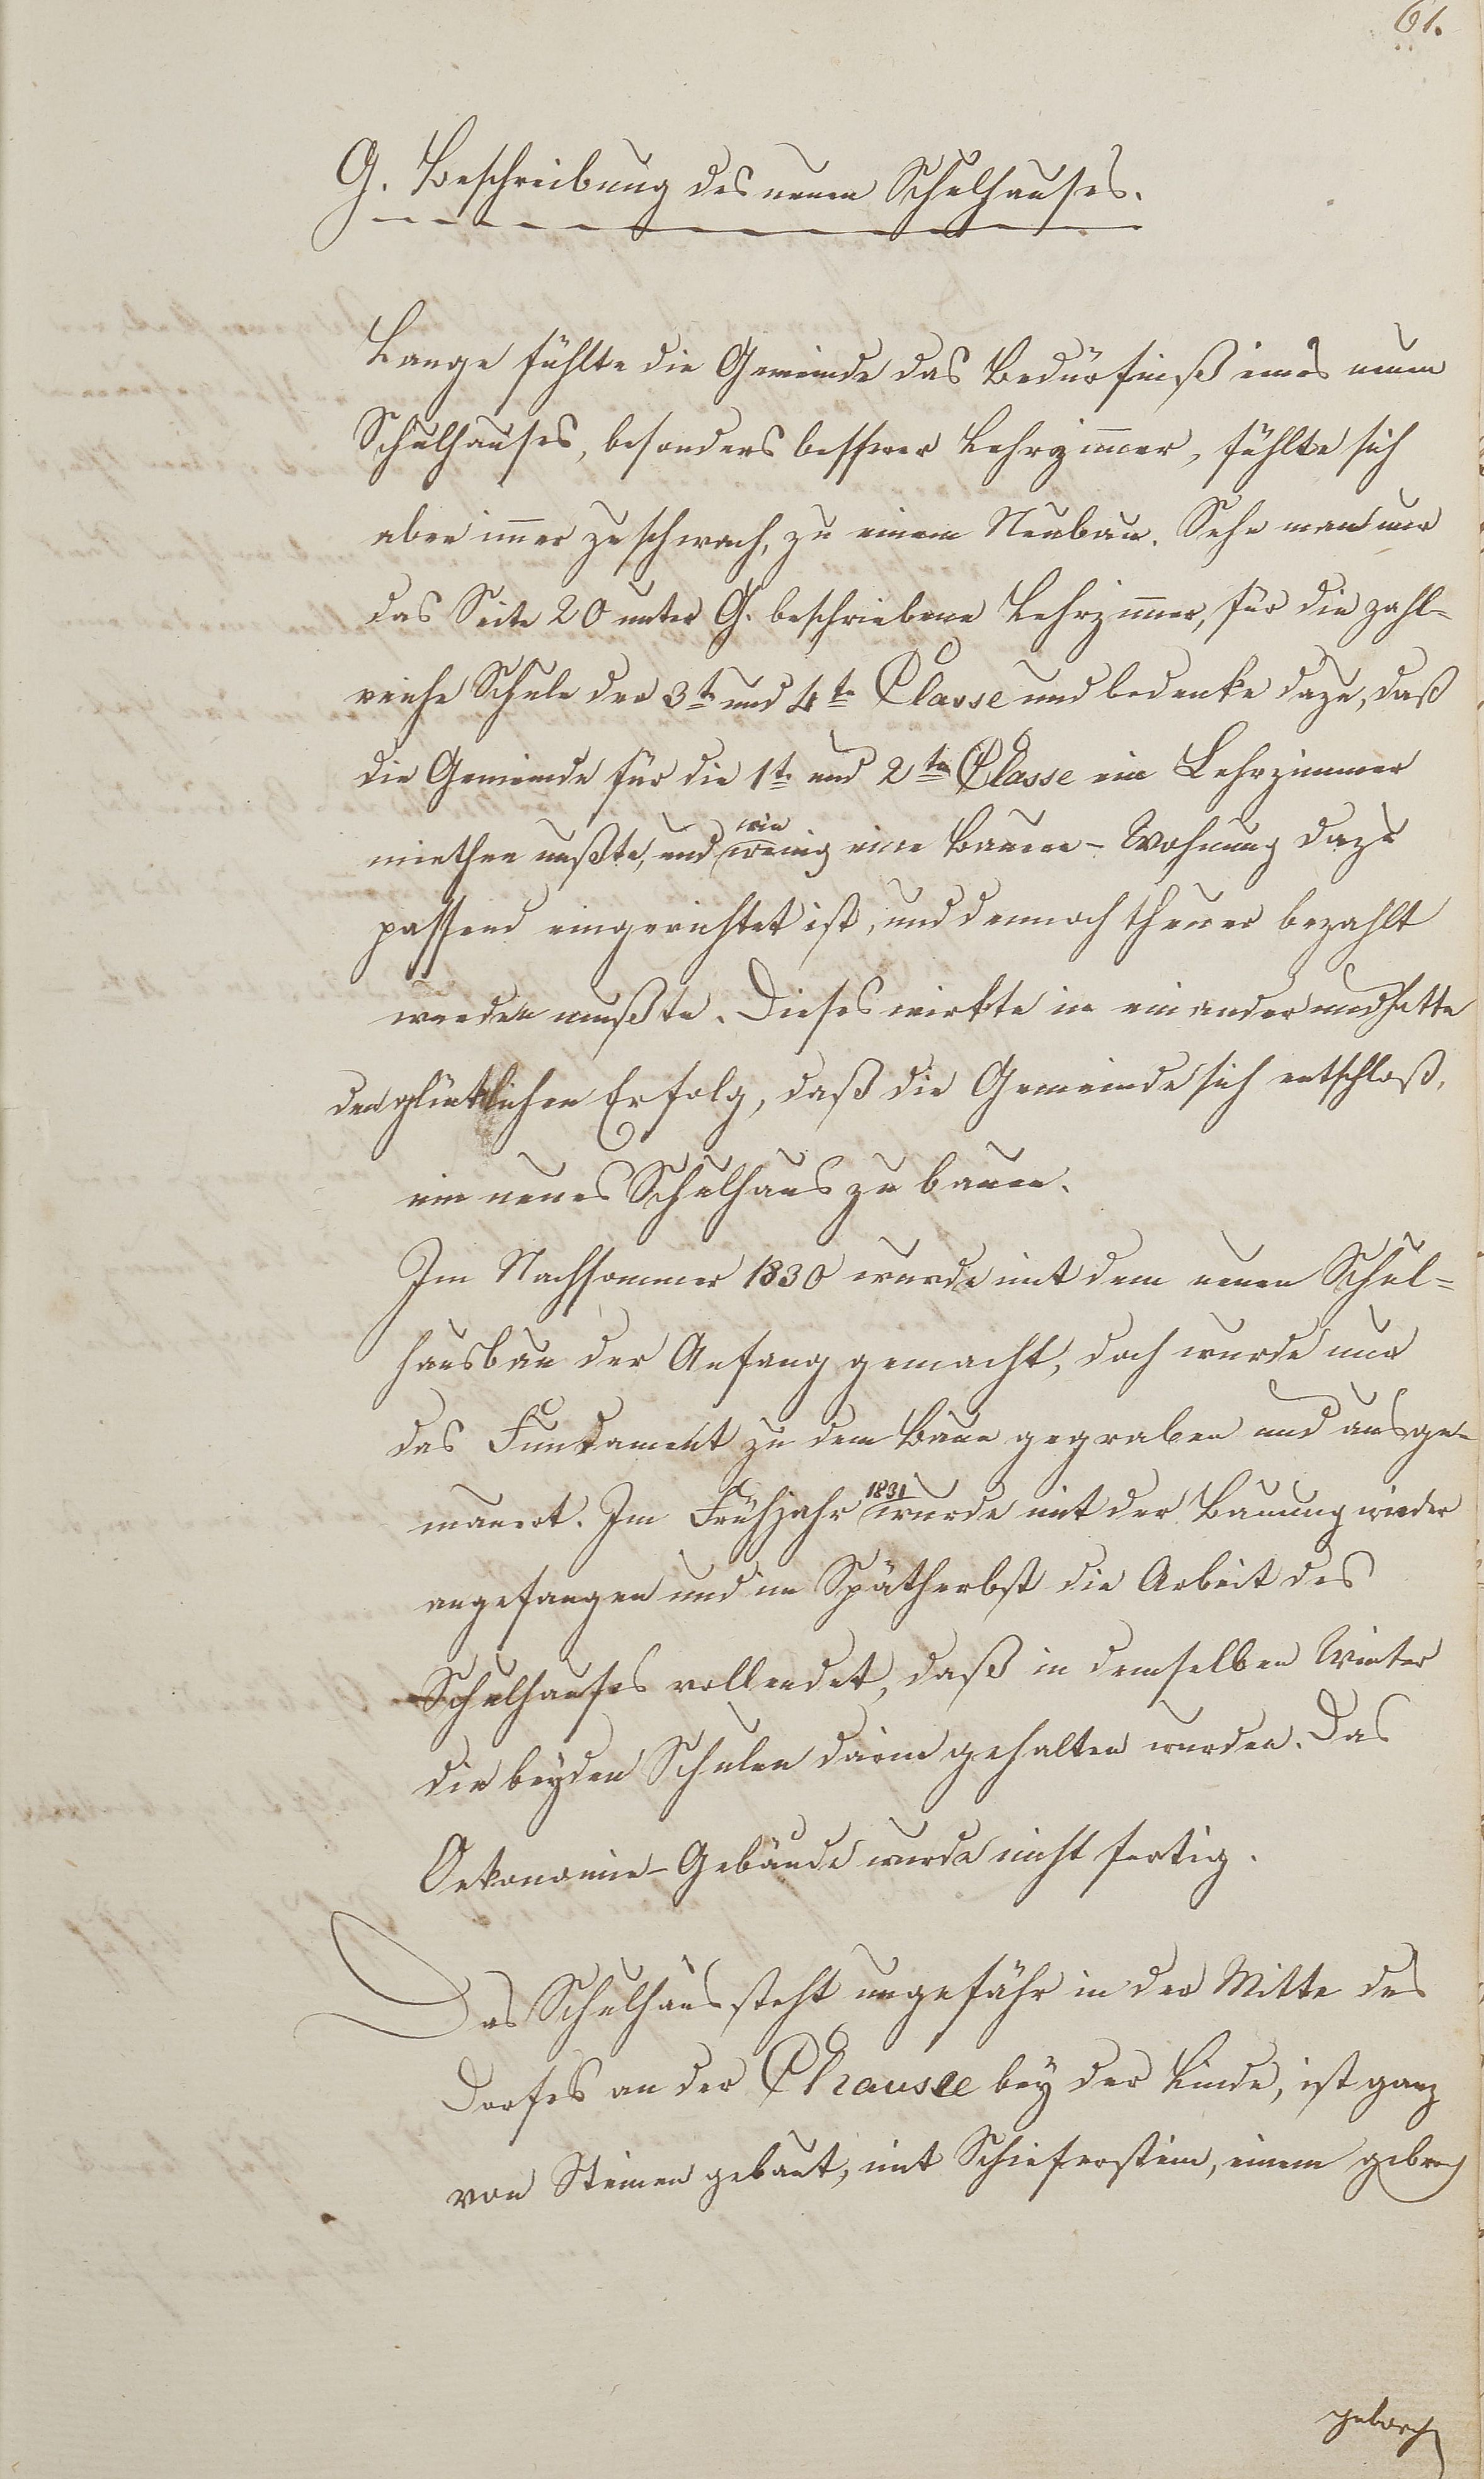 61.
G. Beschreibung des neuen Schulhauses.
Lange fühlte die Gemeinde das Bedürfniß eines neuen
Schulhauses, besonders besserer Lehrzimmer, fühlte sich
aber immer zu schwach, zu einem Neubau. Sehe man nur
das Seite 20 unter G. beschriebene Lehrzimmer, für die zahl-
reiche Schule der 3te und 4te Classe und bedenke dazu, daß
die Gemeinde für die 1te und 2ten Classe ein Lehrzimmer
miethen mußte, und wie wenig eine Bauern-Wohnung dazu
passend eingerichtet ist, und dennoch theuer bezahlt
werden mußte. Dieses wirkte in einander und hatte
den glücklichen Erfolg, daß die Gemeinde sich entschloß,
ein neues Schulhaus zu bauen.
Im Nachsommer 1830 wurde mit dem neuen Schul-
hausbau der Anfang gemacht, doch wurde nur
das Funtament zu dem Baue gegraben und ausge-
mauert. Im Frühjahr 1831 wurde mit der Bauung wieder
angefangen und im Spätherbst die Arbeit des
Schulhauses vollendet, daß in demselben Winter
die beyden Schulen darin gehalten wurden. Das
Oekonomie-Gebäude wurde nicht fertig.
Das Schulhaus steht ungefähr in der Mitte des
Dorfes an der Chausee bey der Linde, ist ganz
von Steinen gebaut, mit Schieferstein, einem